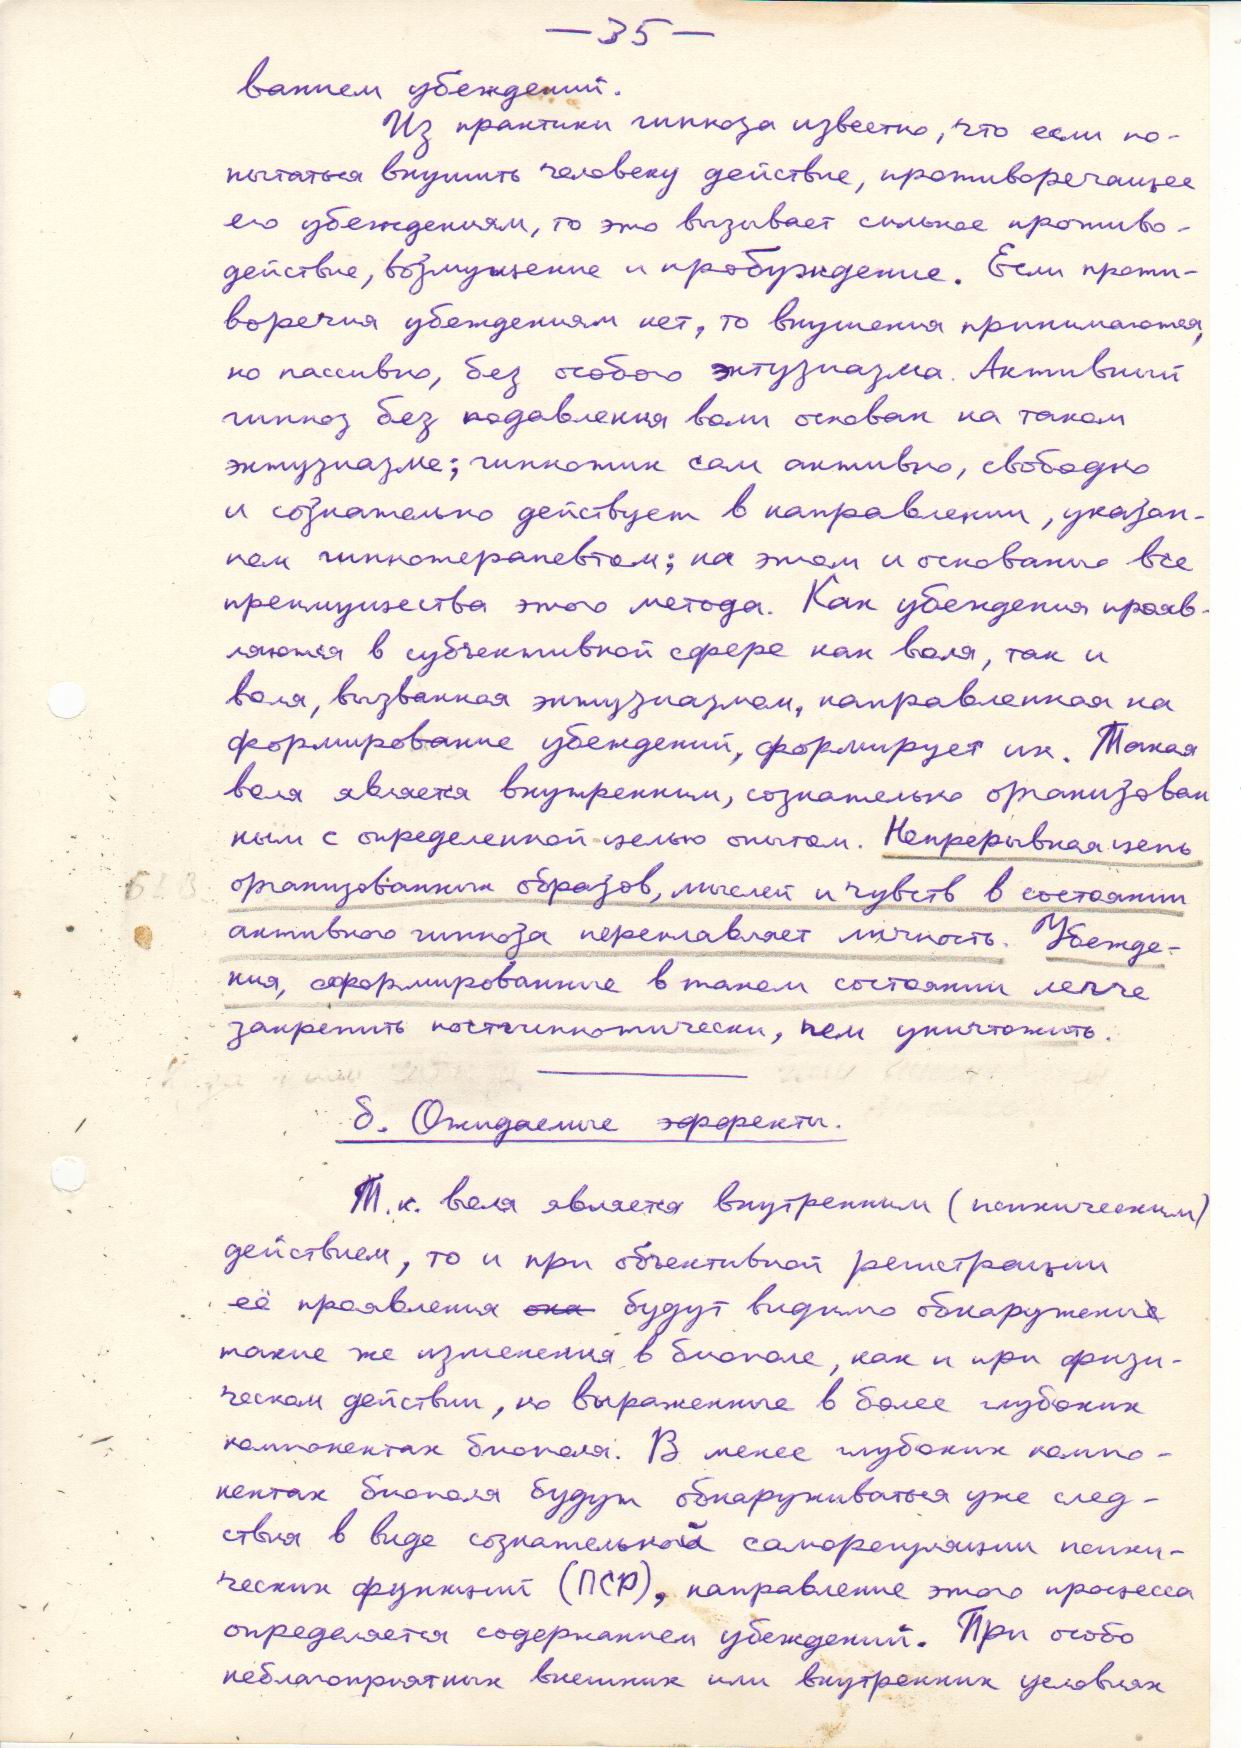 —35—
ванием убеждений.
Из практики гипноза известно, что если по-
пытаться внушить человеку действие, противоречащее
его убеждениям, то это вызывает сильное противо-
действие, возмущение и пробуждение. Если проти-
воречия убеждениям нет, то внушения принимаются,
но пассивно, без особого энтузиазма. Активный
гипноз без подавления воли основан на таком
энтузиазме; гипнотик сам активно, свободно
и сознательно действует в направлении, указан-
ном гипнотерапевтом; на этом и основано все
преимущества этого метода. Как убеждения прояв-
ляются в субъективной сфере как воля, так и
воля, вызванная энтузиазмом, направленная на
формирование убеждений, формирует их. Такая
воля является внутренним, сознательно организован
ным с определенной целью опытом. Непрерывная цепь
организованных образов, мыслей и чувств в состоянии
активного гипноза переплавляет личность. Убежде-
ния, сформированные в таком состоянии легче
закрепить постгипнотически, чем уничтожить.
б. Ожидаемые эффекты.
Т.к. воля является внутренним (психическим)
действием, то и при объективной регистрации
её проявления она будут видимо обнаружены
такие же изменения в биополе, как и при физи-
ческом действии, но выраженные в более глубоких
компонентах биополя. В менее глубоких компо-
нентах биополя будут обнаруживаться уже след-
ствия в виде сознательной саморегуляции психи-
ческих функций (ПСР), направление этого процесса
определяется содержанием убеждений. При особо
неблагоприятных внешних или внутренних условиях